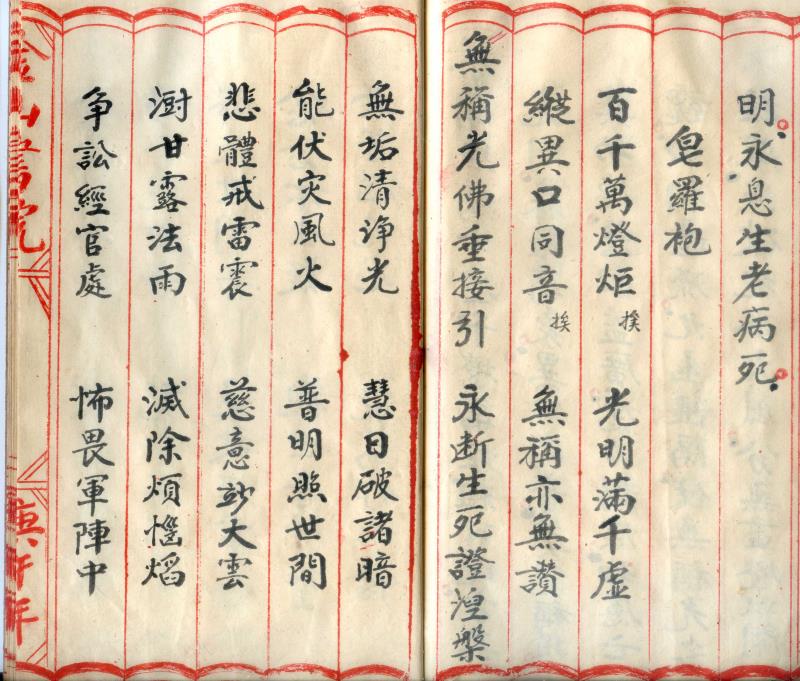 明永息生老病死
皂羅袍
百千萬燈炬挨 光明滿千虛
縱異口同音挨 無稱亦無讚
無稱光佛垂接引 永断生死證涅槃
無垢清诤光 慧日破諸暗
能伏灾風火 普明照世間
悲體戒雷震 慈意妙大雲
澍甘露法雨 滅除煩惱熖
争訟經官處 怖畏軍陣中
山書院